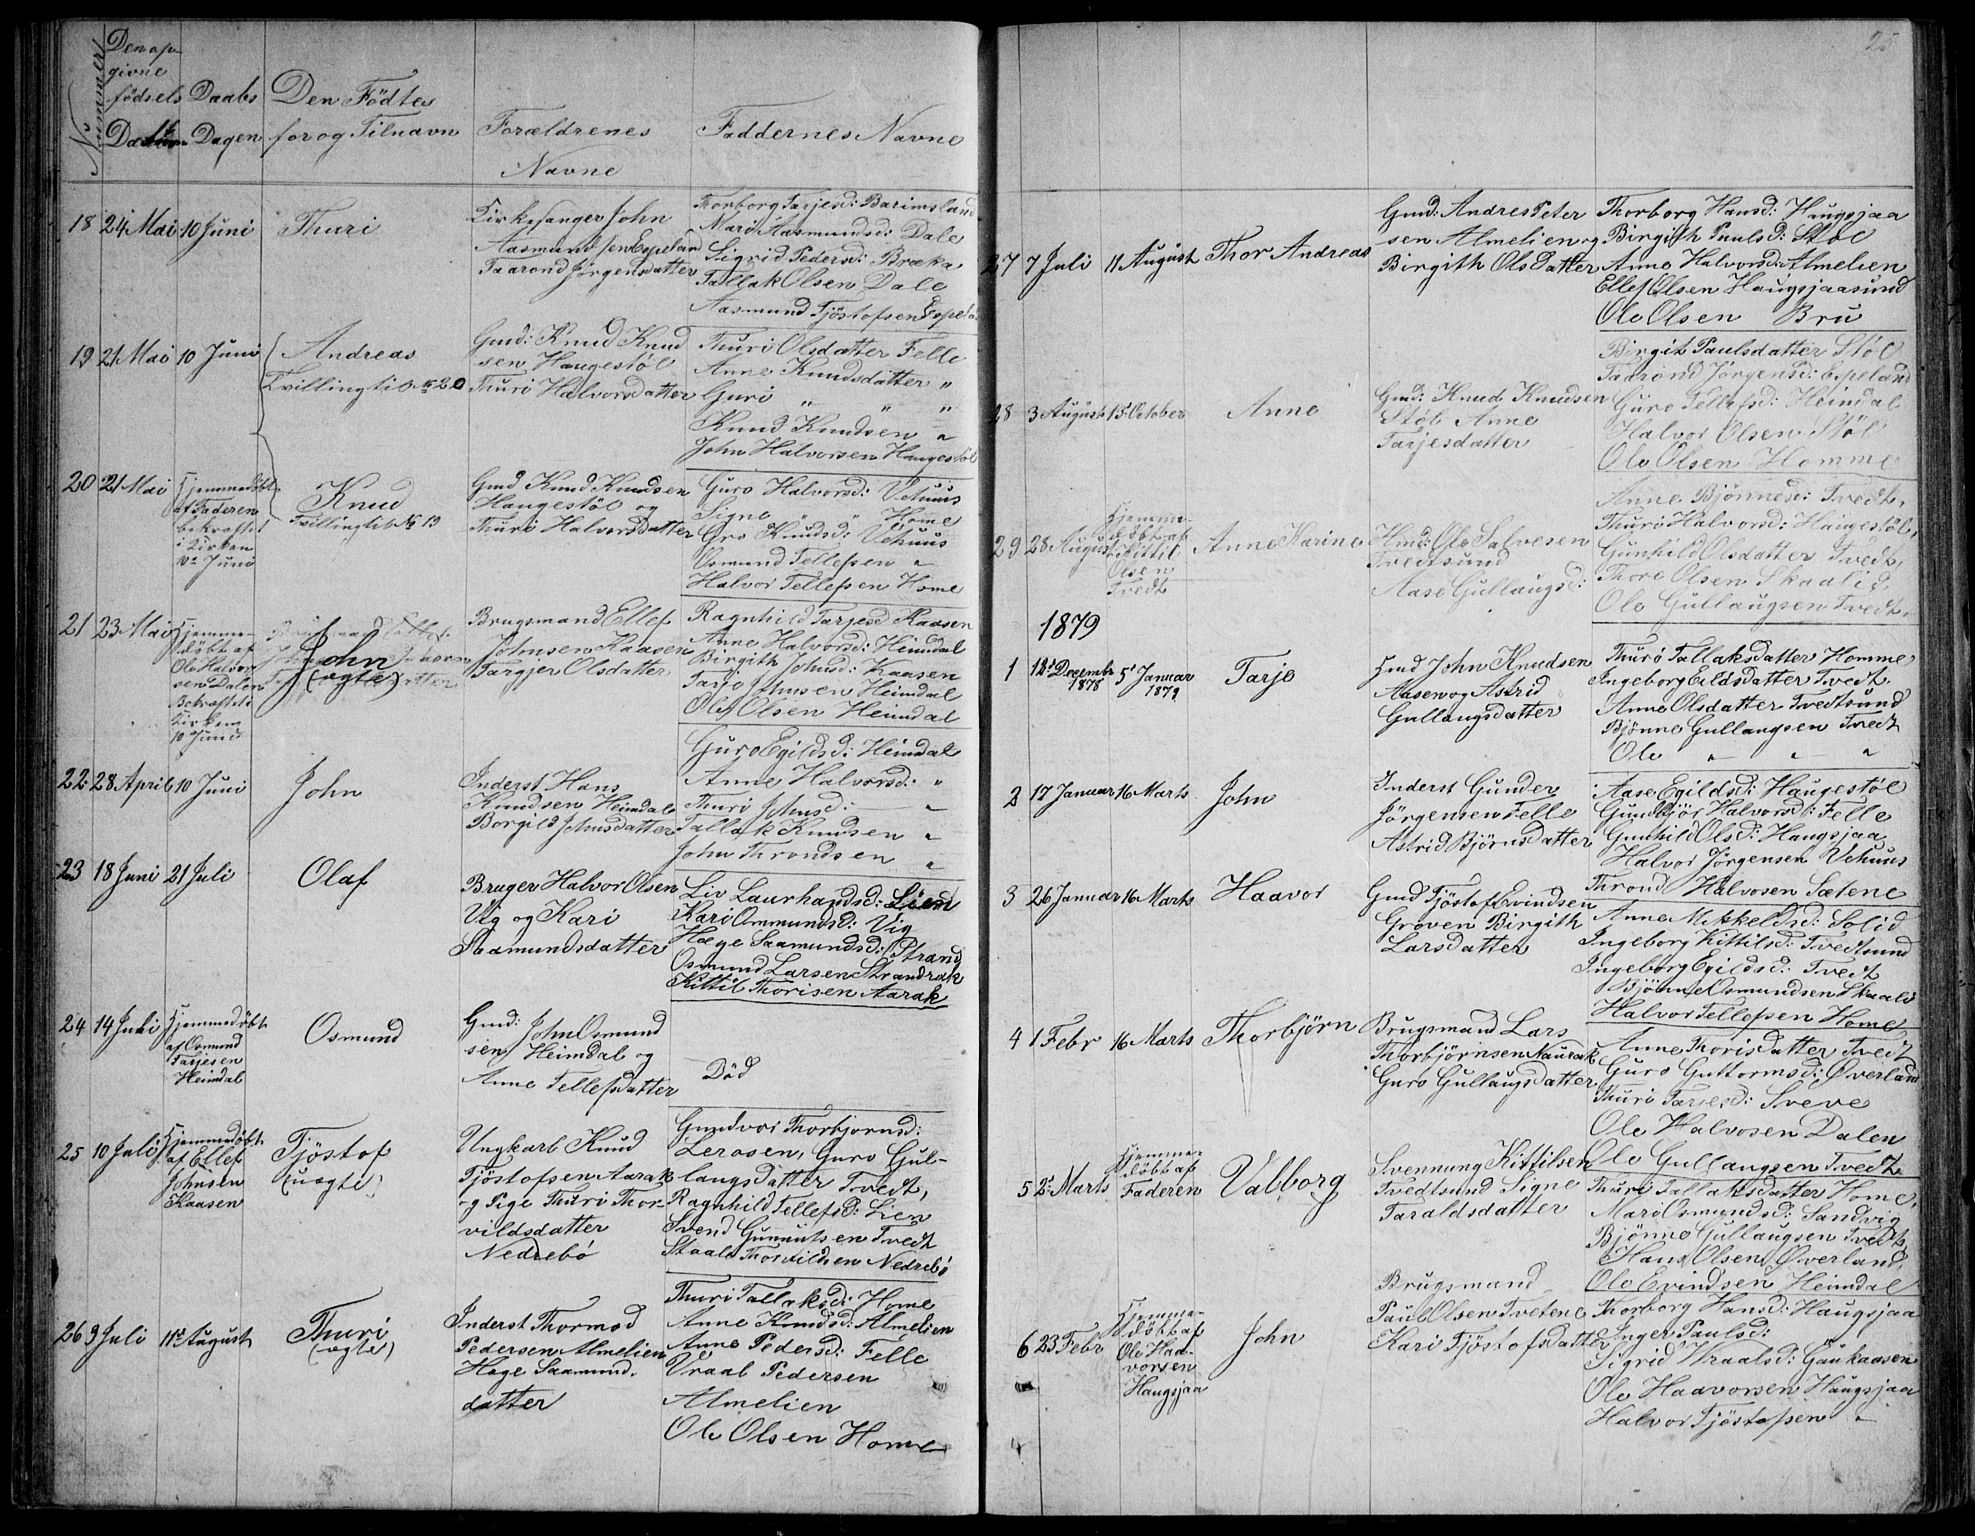 Nummer
Den op
givne
födsels Daabs Den Födtes
Datum Dagen for og Tilnavn Forældrenes Faddernes Navne
Navne
18 24 Mai 10 Juni Thuri
Kirkesanger John
Aasmundsen Espeland
Taarond Jörgensdatter
Thorborg Tarjesd: Barimsland
Mari Aasmundsd: Dale
Sigrid Pedersd: Bræka
Tallak Olsen Dale
Aasmund Tjöstofsen Espeland
19 21 Mai 10 Juni Andreas
Tvilling til No 20
Gmd: Knud Knud
sen Haugestöl
Thuri Halvorsdatter
Thuri Olsdatter Felle
Anne Knudsdatter "
Guri " " "
Knud Knudsen "
John Halvorsen Haugestöl
20 21 Mai Hjemmedöbt
af Faderen
bekræftet
i Kirken
10de Juni
Knud
Tvilling til No 19
Gmd Knud Knudsen
Haugestöl og
Thuri Halvorsdatter
Guro Halvorsd: Vehuus
Signe " " Home
Gro Knudsd: Vehuus
Osmund Tellefsen "
Halvor Tellefsen Home
21 23 Mai Hjemme-
döbt af
Ole Halvor
sen Dalen
Bekræftet i
Kirken
10 Juni
John
(ægte)
Brugsmand Ellef
Johnsen Kaasen og
Targjer Olsdatter
Ragnhild Tarjesd Kaasen
Anne Halvorsd: Heimdal
Birgith Johnsd: Kaasen
Tarje Johnsen Heimdal
Ole Olsen Heimdal
22 28 April 10 Juni John
Inderst Hans
Knudsen Heimdal
Borgild Johnsdatter
Guro Egildsd: Heimdal
Anne Halvorsd: "
Thuri Johnsd: "
Tallak Knudsen "
John Throndsen "
23 18 Juni 21 Juli Olaf
Bruger Halvor Olsen
Vig og Kari
Saamundsdatter
Liv Laurhandsd: Lien
Kari Ommundsd: Vig
Hæge Saamundsd: Strand
Osmund Larsen Strandrak
Kittil Thorisen Aarak
24 14 Juli Hjemmedöbt
af Osmund
Tarjesen
Heimdal
Osmund
Gmd: John Osmund
sen Heimdal og
Anne Tellefsdatter
Död
25 10 Juli Hjemmedöbt
af Ellef
Johnsen
Kaasen
Tjöstof
(uægte)
Ungkarl Knud
Tjöstofsen Aarak
og Pige Thuri Thor-
vildsdatter
Nedrebö
Gundvor Thorbjornsd:
Lerosen, Guro Gul-
laugsdatter Tvedt,
Ragnhild Tellefsd: Lien
Svend Gunnufsen Tvedt
Staale Thorvildsen Nedrebö
26 9 Juli 11te August Thuri
(ægte)
Inderst Thormod
Pedersen Almelien
Hæge Saamund.
datter
Thuri Tallaksd: Home
Anne Knudsd: Almelien
Anne Pedersd: Felle
Vraal Pedersen
Almelien
Ole Olsen Home
25
27 7 Juli 11 August Thor Andreas
Gmd: Andres Peter
sen Almelien og
Birgith Olsdatter
Thorborg Hansd: Haugsjaa
Birgith Paulsd: Stöl
Anne Halvorsd: Almelien
Ellef Olsen Haugsjaasund
Ole Olsen Bru
28 3 August 15 October Anne
Gmd: Knud Knudsen
Stöl Anne
Tarjesdatter
Birgit Paulsdatter Stöl
Taarond Jörgensd: Espeland
Guro Tellefsd: Heimdal
Halvor Olsen Stöl
Ole Olsen Homme
29 28 August Hjemme-
döbt af
Kittil
Olsen
Tvedt
Anne Karine
Hmd: Ole Salvesen
Tvedtsund
Aase Gullaugsd:
Anne Bjönnesd: Tvedt,
Thuri Halvorsd: Haugestöl,
Gunhild Olsdatter Tvedt,
Thore Olsen Skaalid,
Ole Gullaugsen Tvedt.
1879
1 18de Decembr
1878 5te Januar
1879 Tarje
Hmd John Knudsen
Aasen og Astrid
Gullaugsdatter
Thuri Tallaksdatter Homme
Ingeborg Eildsdatter Tvedt.
Anne Olsdatter Tvedtsund
Bjönne Gullaugsen Tvedt
Ole " " "
2 17 Januar 16 Marts John
Inderst Gunder
Jörgensen Felle
Astrid Björnsdatter
Aase Egildsd: Haugestöl
Gundbjör Halvorsd: Felle
Gunhild Olsd: Haugsjaa
Halvor Jörgensen Vehuus
Thrond Halvosen Sætene
3 26 Januar 16 Marts Haavor
Gmd Tjöstof Evindsen
Gröven Birgith
Larsdatter
Anne Mikkelsd: Solid
Ingeborg Kittilsd: Tvedtsund
Ingeborg Egildsd: Tvedt
Bjönne Osmundsen Skaali
Halvor Tellefsen Home
4 1 Febr 16 Marts Thorbjörn
Brugsmand Lars
Thorbjörnsen Naurak
Guro Gullaugsdatter
Anne Thorisdatter Tvedt
Guro Guttormsd: Øverland
Thuri Tarjesd: Sveve
Ole Halvosen Dalen
Ole Gullaugsen Tvedt
5 2de Marts Hjemme-
döbt af
Faderen
Valborg
Svennung Kittilsen
Tvedtsund Signe
Taraldsdatter
Thuri Tallaksdatter Home,
Mari Osmundsd: Sandvig
Bjönne Gullaugsen Tvedt
Hans Olsen Øverland,
Ole Evindsen Heimdal
6 23 Febr Hjemme-
döbt af
Ole Haa-
vorsen
Haugsjaa
John
Brugsmand
Paul Olsen Tvetene
Kari Tjöstofsdatter
Thorborg Hansd: Haugsjaa
Inger Paulsd:
Sigrid Vraalsd: Gaukaasen
Ole Haavorsen Haugsjaa
Halvor Tjöstofsen "